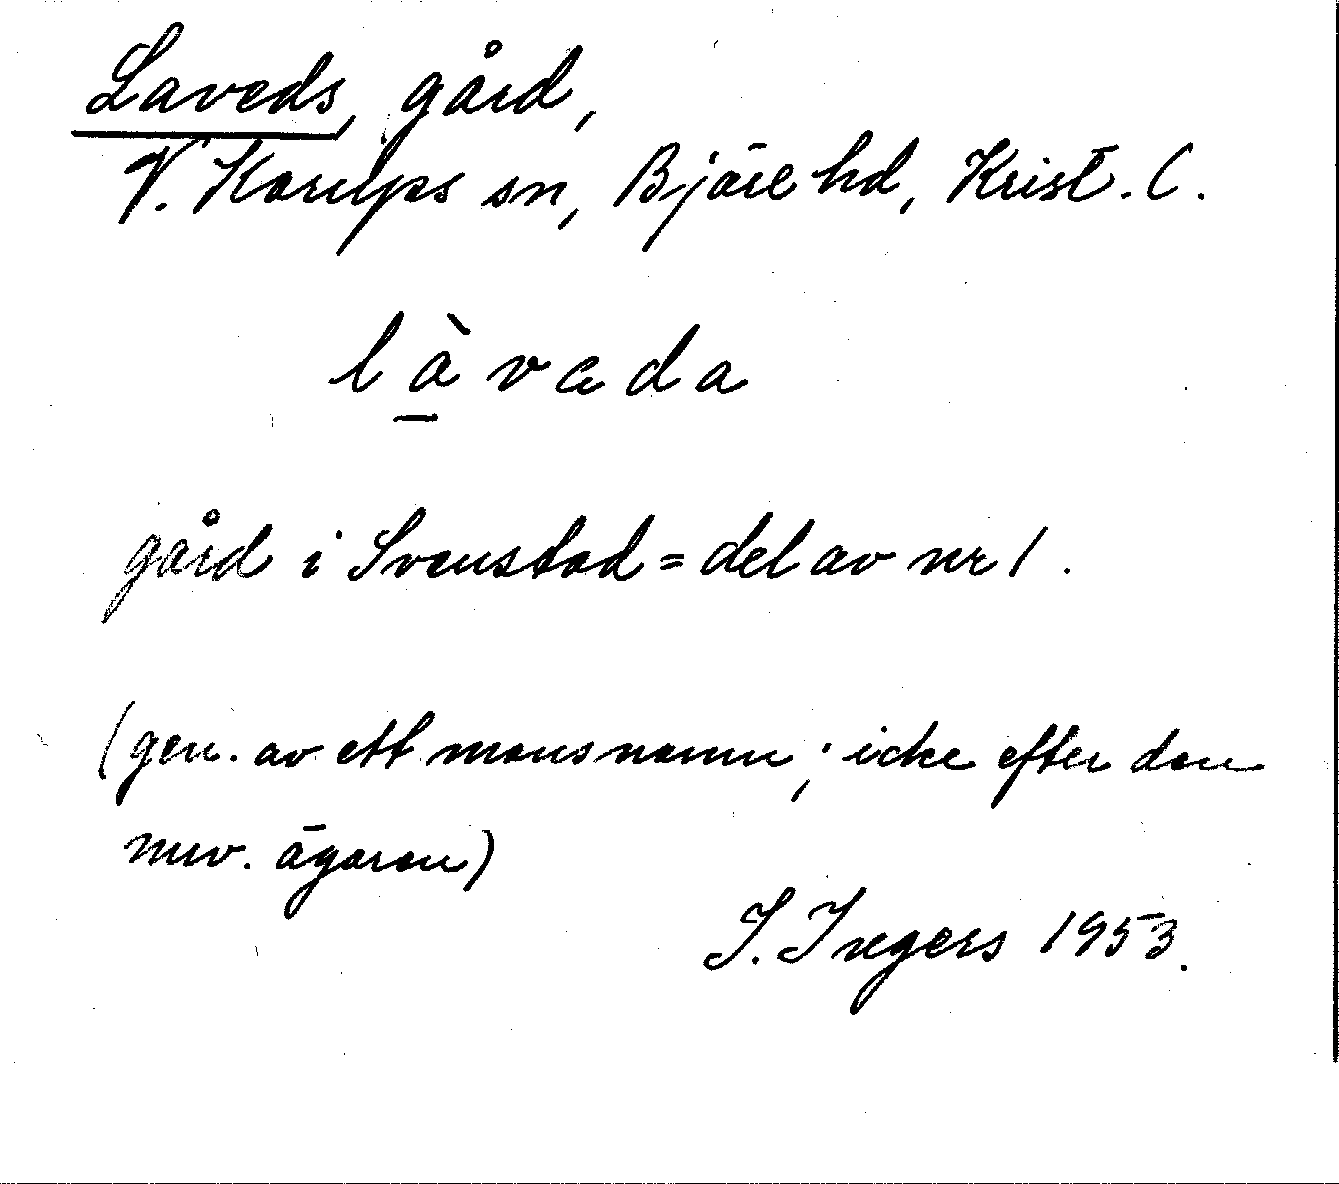 Laveds, gård,
V. Karups sn, Bjäre hd, Krist. l.
làvəda
gård i Svenstad = del av nr 1.
(gen. av ett mansnamn; icke efter den
nuv. ägaren)
I. Ingers 1953.